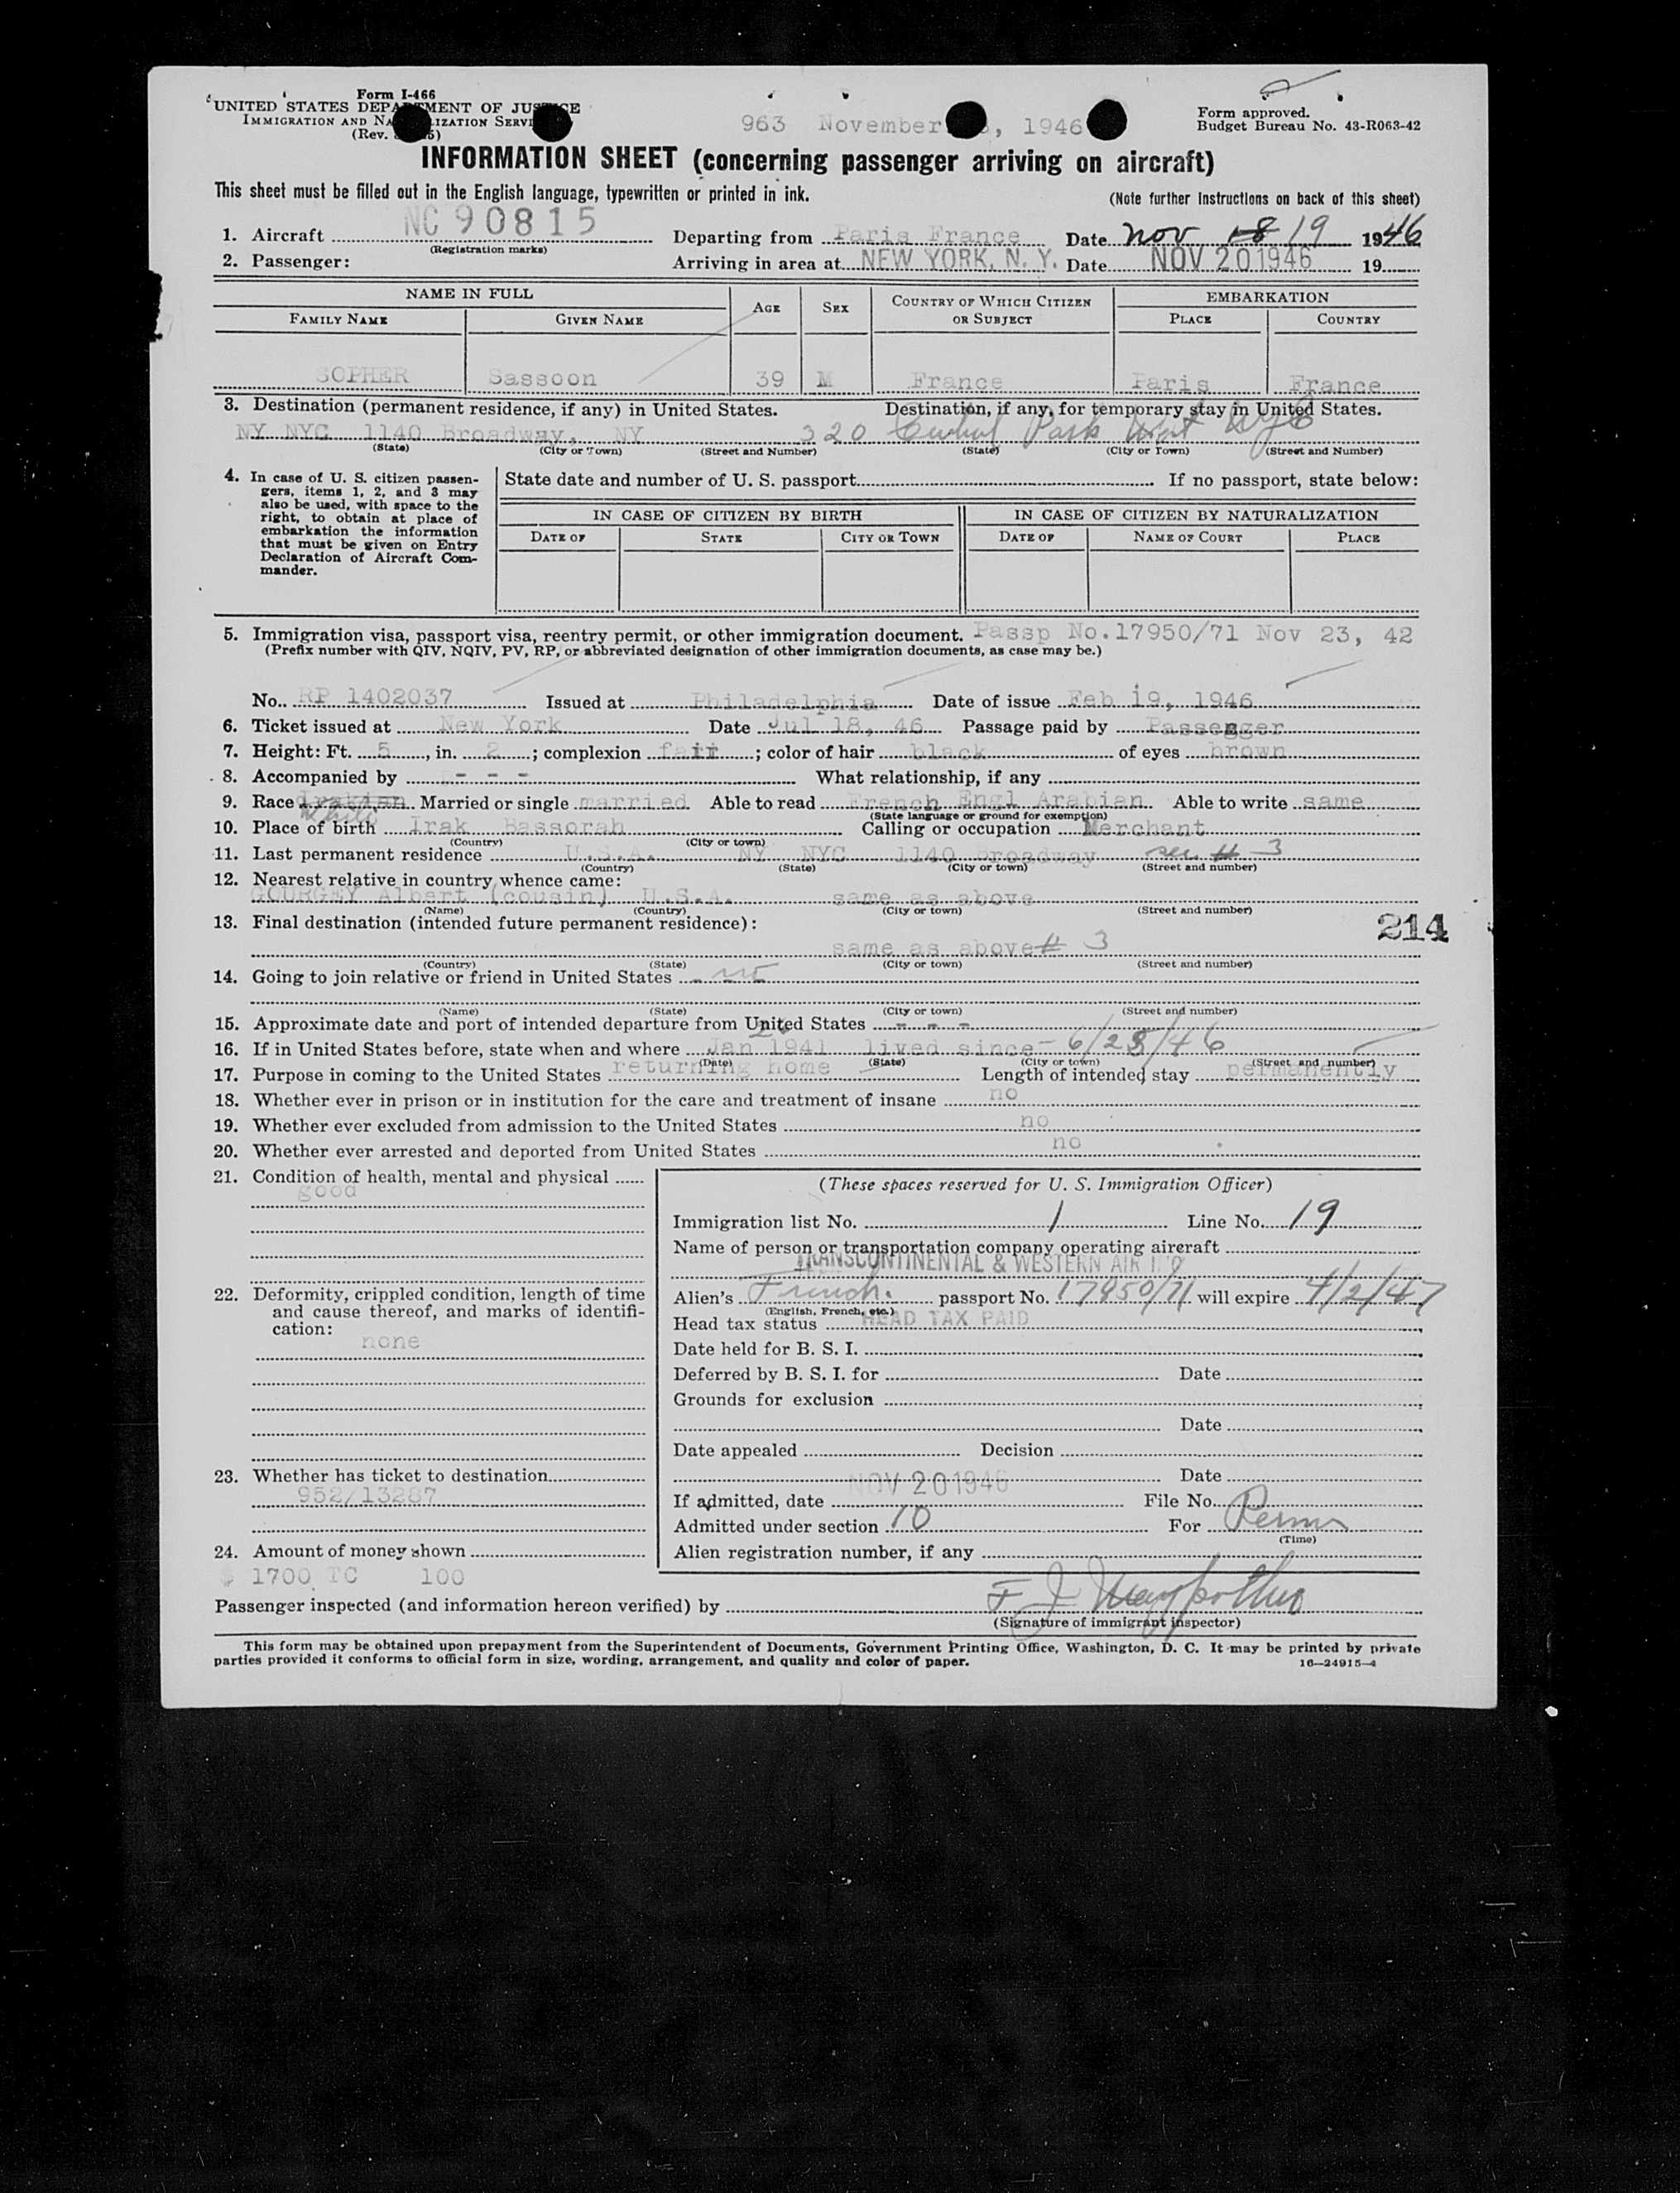 Form I-466
UNITED STATES DEPARTMENT OF JUSTICE
IMMIGRATION AND NATURALIZATION SERVICE
(Rev.
963 November , 1946
Form approved.
Budget Bureau No. 43-R063-42
INFORMATION SHEET (concerning passenger arriving on aircraft)
This sheet must be filled out in the English language, typewritten or printed in ink.
(Note further instructions on back of this sheet)
1. Aircraft NC 90815 Departing from Paris France Date Nov 18 19 1946
(Registration marks)
2. Passenger: Arriving in area at NEW YORK, N. Y. Date NOV 20 1946 19
NAME IN FULL AGE SEX COUNTRY OF WHICH CITIZEN OR SUBJECT EMBARKATION
FAMILY NAME GIVEN NAME PLACE COUNTRY
SOPHER Sassoon 39 M France Paris France
3. Destination (permanent residence, if any) in United States. Destination, if any, for temporary stay in United States.
NY NYC 1140 Broadway, NY 320 Central Park West NYC
(State) (City or Town) (Street and Number) (State) (City or Town) (Street and Number)
4. In case of U. S. citizen passengers, items 1, 2, and 3 may also be used, with space to the right, to obtain at place of embarkation the information that must be given on Entry Declaration of Aircraft Commander.
State date and number of U. S. passport If no passport, state below:
IN CASE OF CITIZEN BY BIRTH IN CASE OF CITIZEN BY NATURALIZATION
DATE OF STATE CITY OR TOWN DATE OF NAME OF COURT PLACE
5. Immigration visa, passport visa, reentry permit, or other immigration document. Passp No.17950/71 Nov 23, 42
(Prefix number with QIV, NQIV, PV, RP, or abbreviated designation of other immigration documents, as case may be.)
No. RP 1402037 Issued at Philadelphia Date of issue Feb 19, 1946
6. Ticket issued at New York Date Jul 18, 46 Passage paid by Passenger
7. Height: Ft. 5, in. 2; complexion fair; color of hair black of eyes brown
8. Accompanied by - - - What relationship, if any
9. Race Married or single married Able to read French Engl Arabian Able to write same
(State language or ground for exemption)
10. Place of birth Irak Bassorah Calling or occupation Merchant
(Country) (City or town)
11. Last permanent residence U.S.A. NY NYC 1140 Broadway see # 3
(Country) (State) (City or town) (Street and number)
12. Nearest relative in country whence came:
GOURGEY Albert (cousin) U.S.A. same as above
(Name) (Country) (City or town) (Street and number)
13. Final destination (intended future permanent residence):
214
same as above # 3
(Country) (State) (City or town) (Street and number)
14. Going to join relative or friend in United States no
(Name) (State) (City or town) (Street and number)
15. Approximate date and port of intended departure from United States - - -
16. If in United States before, state when and where Jan 1941 lived since - 6/28/46
(Date) (State) (City or town) (Street and number)
17. Purpose in coming to the United States returning home Length of intended stay permanently
18. Whether ever in prison or in institution for the care and treatment of insane no
19. Whether ever excluded from admission to the United States no
20. Whether ever arrested and deported from United States no
21. Condition of health, mental and physical
good
22. Deformity, crippled condition, length of time and cause thereof, and marks of identification:
none
23. Whether has ticket to destination
952/13287
24. Amount of money shown
$ 1700 TC 100
(These spaces reserved for U. S. Immigration Officer)
Immigration list No. 1 Line No. 19
Name of person or transportation company operating aircraft
TRANSCONTINENTAL & WESTERN AIR INC
Alien's French passport No. 17950/71 will expire 4/2/47
(English, French, etc.)
Head tax status HEAD TAX PAID
Date held for B. S. I.
Deferred by B. S. I. for Date
Grounds for exclusion
Date
Date appealed Decision
Date
If admitted, date NOV 20 1946 File No.
Admitted under section 10 For Perm
(Time)
Alien registration number, if any
Passenger inspected (and information hereon verified) by F J
(Signature of immigrant inspector)
This form may be obtained upon prepayment from the Superintendent of Documents, Government Printing Office, Washington, D. C. It may be printed by private
parties provided it conforms to official form in size, wording, arrangement, and quality and color of paper.
16—24915-4